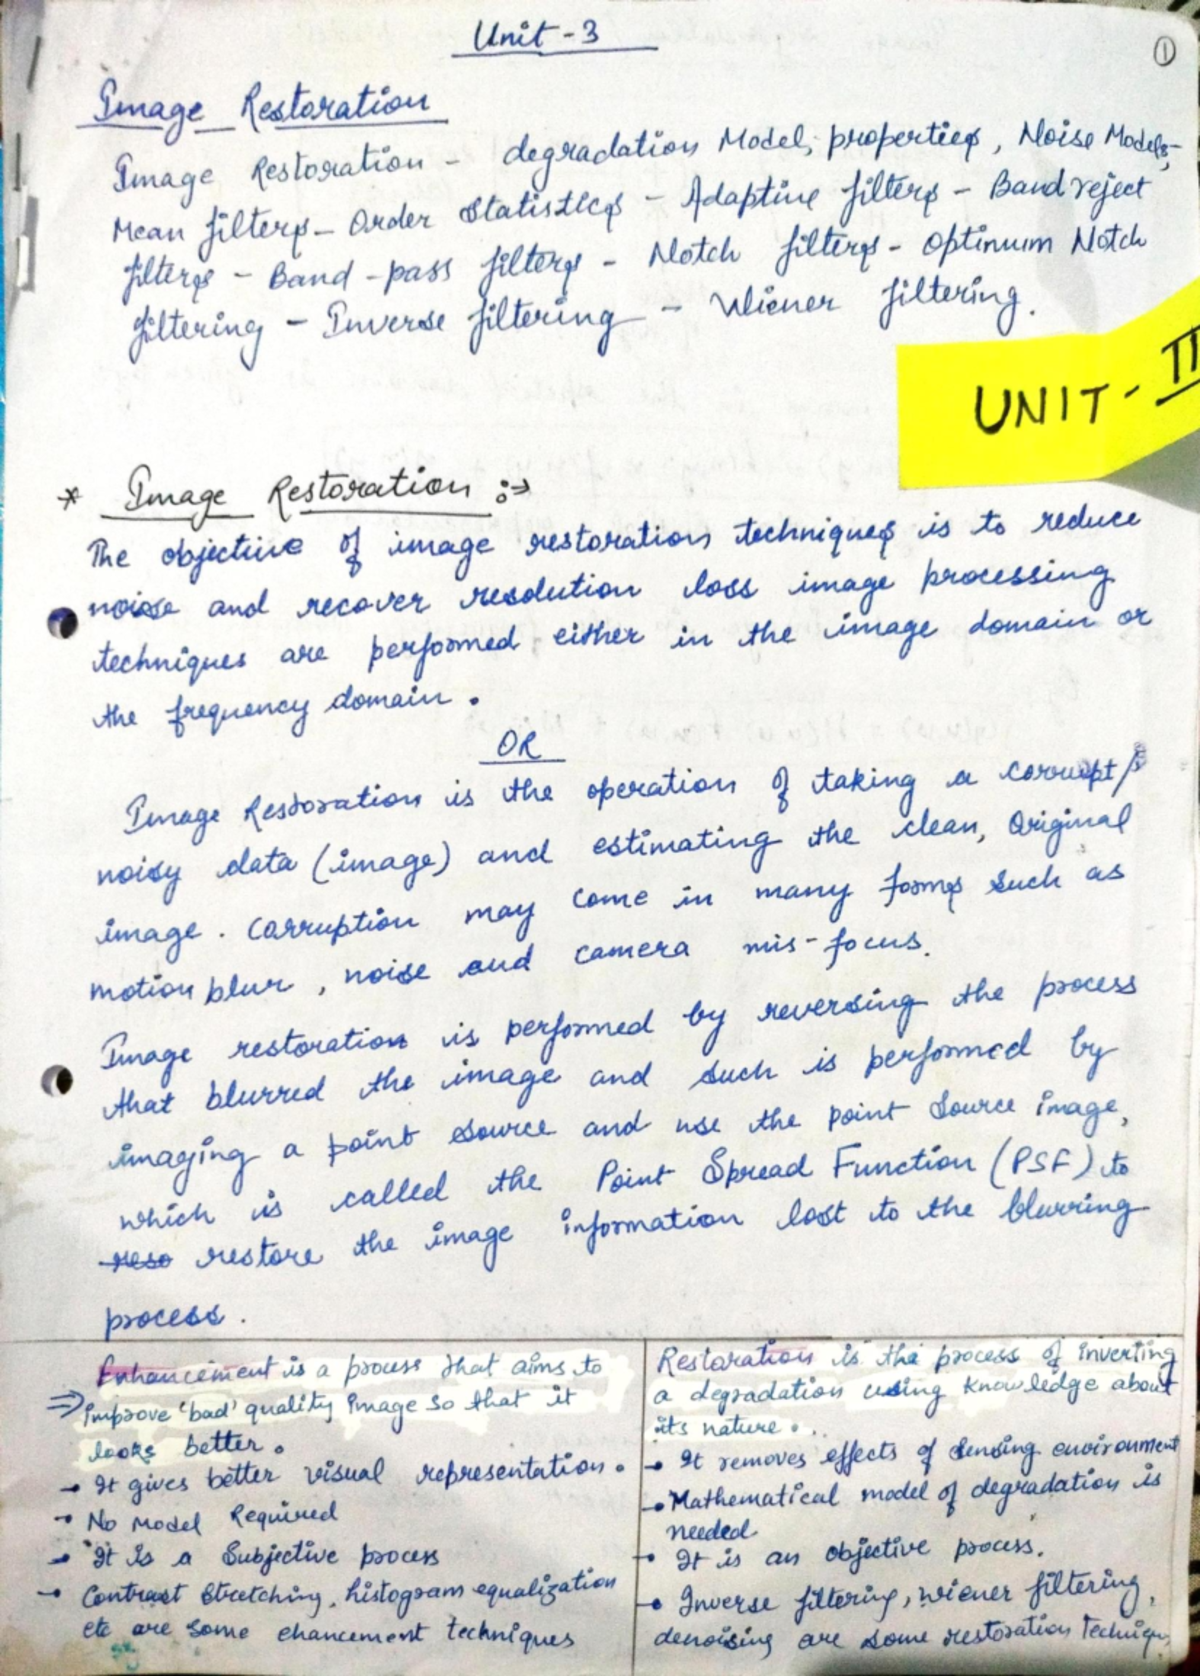 Unit - 3
1
Image Restoration
Image Restoration - degradation Model, properties, Noise Models,-
Mean filters - Order Statistics - Adaptive filters - Band reject
filters - Band - pass filters - Notch filters - Optimum Notch
filtering - Inverse filtering - Wiener filtering.
UNIT - II
* Image Restoration :->
The objective of image restoration techniques is to reduce
noise and recover resolution loss image processing
techniques are performed either in the image domain or
the frequency domain.
OR
Image Restoration is the operation of taking a corrupt/
noisy data (image) and estimating the clean, Original
image. Corruption may come in many forms such as
motion blur, noise and camera mis-focus.
Image restoration is performed by reversing the process
that blurred the image and such is performed by
imaging a point source and use the point source image,
which is called the Point Spread Function (PSF) to
restore the image information lost to the blurring
process.
Enhancement is a process that aims to
=> improve 'bad' quality image so that it
looks better.
→ It gives better visual representation.
→ No Model Required
→ It is a Subjective process
→ Contrast Stretching, histogram equalization
etc are some ehancement techniques
Restoration is the process of inverting
a degradation using knowledge about
its nature...
→ It removes effects of sensing environment
→ Mathematical model of degradation is
needed
→ It is an objective process.
→ Inverse filtering, wiener filtering,
denoising are some restoration Techniqu